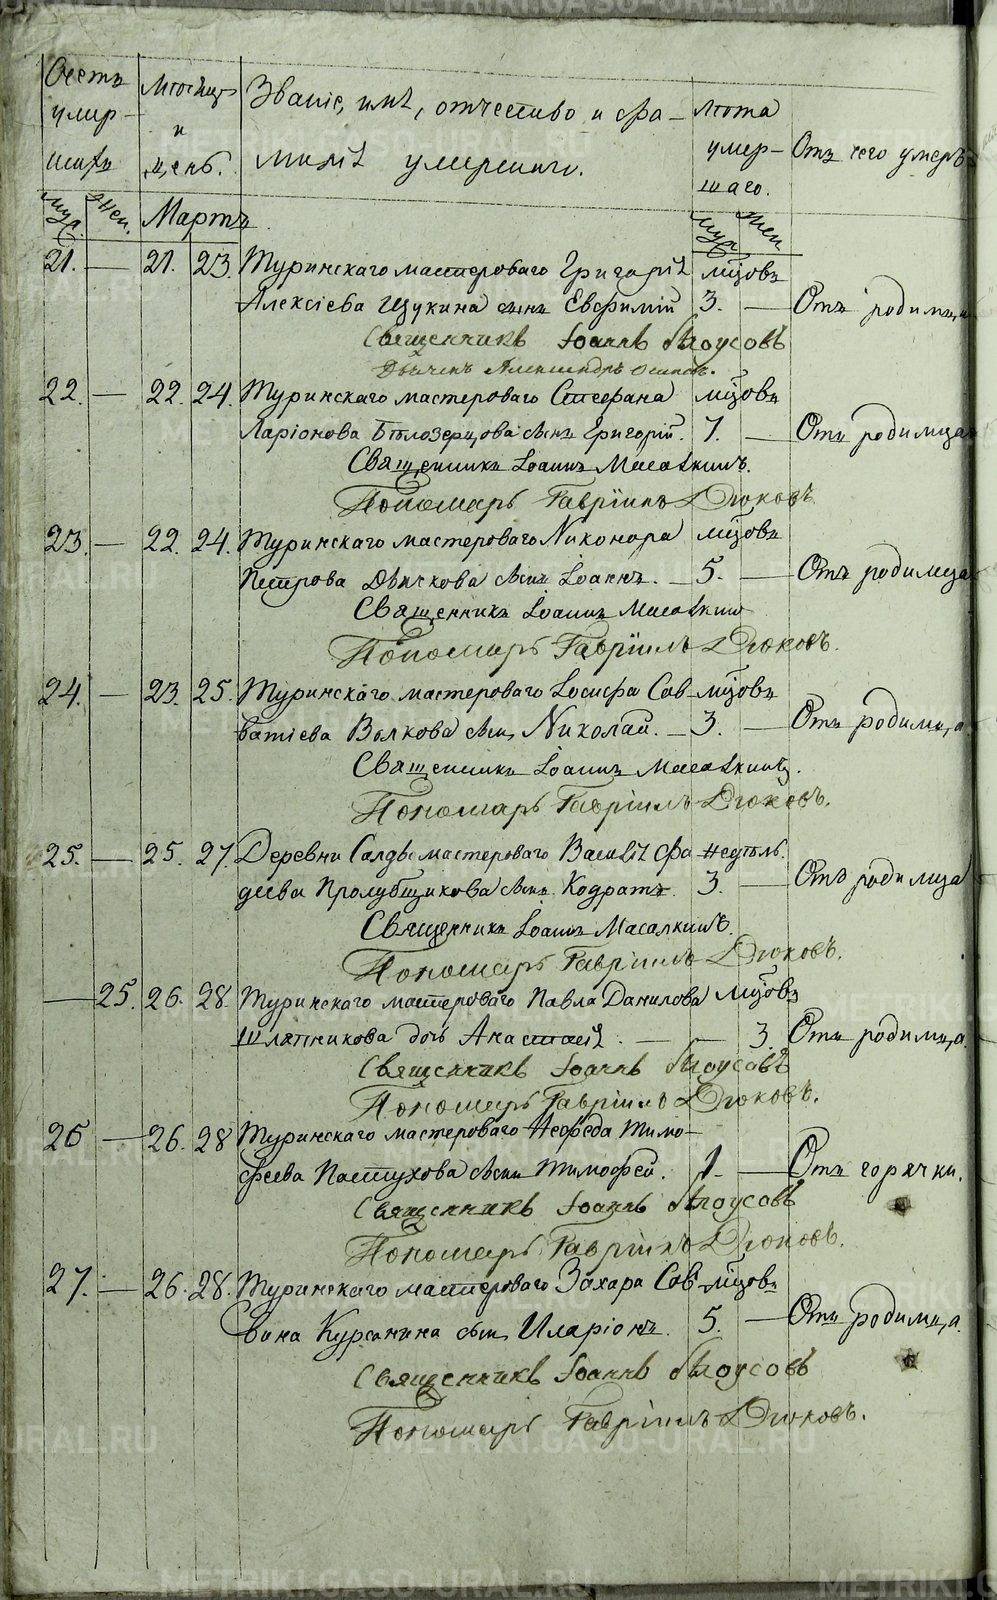 Счетъ умер- шихъ
Мѣсяцъ и день.
Званіе, имѧ, отчество и фа-
миліѧ умершаго.
Лѣта умер- шаго.
Отъ чего умеръ
Муж. Жен. Мартъ Муж Жен
21. — 21. 23. Туринскаго мастероваго Григоріѧ мѣсѧцовъ
Алексѣева Щукина сынъ Евфимій 3. — Отъ родимца
Священникъ Іоаннъ Бѣлоусовъ
Дьячекъ Александръ Осиповъ.
22. — 22. 24. Туринскаго мастероваго Стефана мцовъ
Ларіонова Бѣлозерцова сынъ Григорій. 7. — Отъ родимца
Священникъ Іоаннъ Масалкинъ.
Пономарь Гавріилъ Дюковъ
23. — 22. 24. Туринскаго мастероваго Никонора мцовъ
Петрова Дьячкова сынъ Іоаннъ. — 5. — Отъ родимца
Священникъ Іоаннъ Масалкинъ
Пономарь Гавріилъ Дюковъ.
24. — 23. 25. Туринскаго мастероваго Іосифа Сав- мцовъ
ватіева Волкова сынъ Николай. — 3. — Отъ родимца.
Священникъ Іоаннъ Масалкинъ.
Пономарь Гавріилъ Дюковъ.
25. — 25. 27. Деревни Салды мастероваго Василіѧ Фа- недѣль.
деева Пролубщикова сынъ Кодратъ. 3. — Отъ родимца
Священникъ Іоаннъ Масалкинъ.
Пономарь Гавріилъ Дюковъ.
— 25. 26. 28. Туринскаго мастероваго Павла Данилова мцовъ
Шляпникова дочь Анастасіѧ. — — 3. Отъ родимца.
Священникъ Іоаннъ Бѣлоусовъ
Пономарь Гавріилъ Дюковъ.
26 — 26. 28 Туринскаго мастероваго Нефеда Тимо-
феева Пастухова сынъ Тимофей. 1. — Отъ горячки.
Священникъ Іоаннъ Бѣлоусовъ
Пономарь Гавріилъ Дюковъ.
27. — 26. 28. Туринскаго мастероваго Захара Сав- мцовъ
вина Курсанина сынъ Иларіонъ. 5. — Отъ родимца.
Священникъ Іоаннъ Бѣлоусовъ
Пономарь Гавріилъ Дюковъ.
METRIKI.GASO-URAL.RU